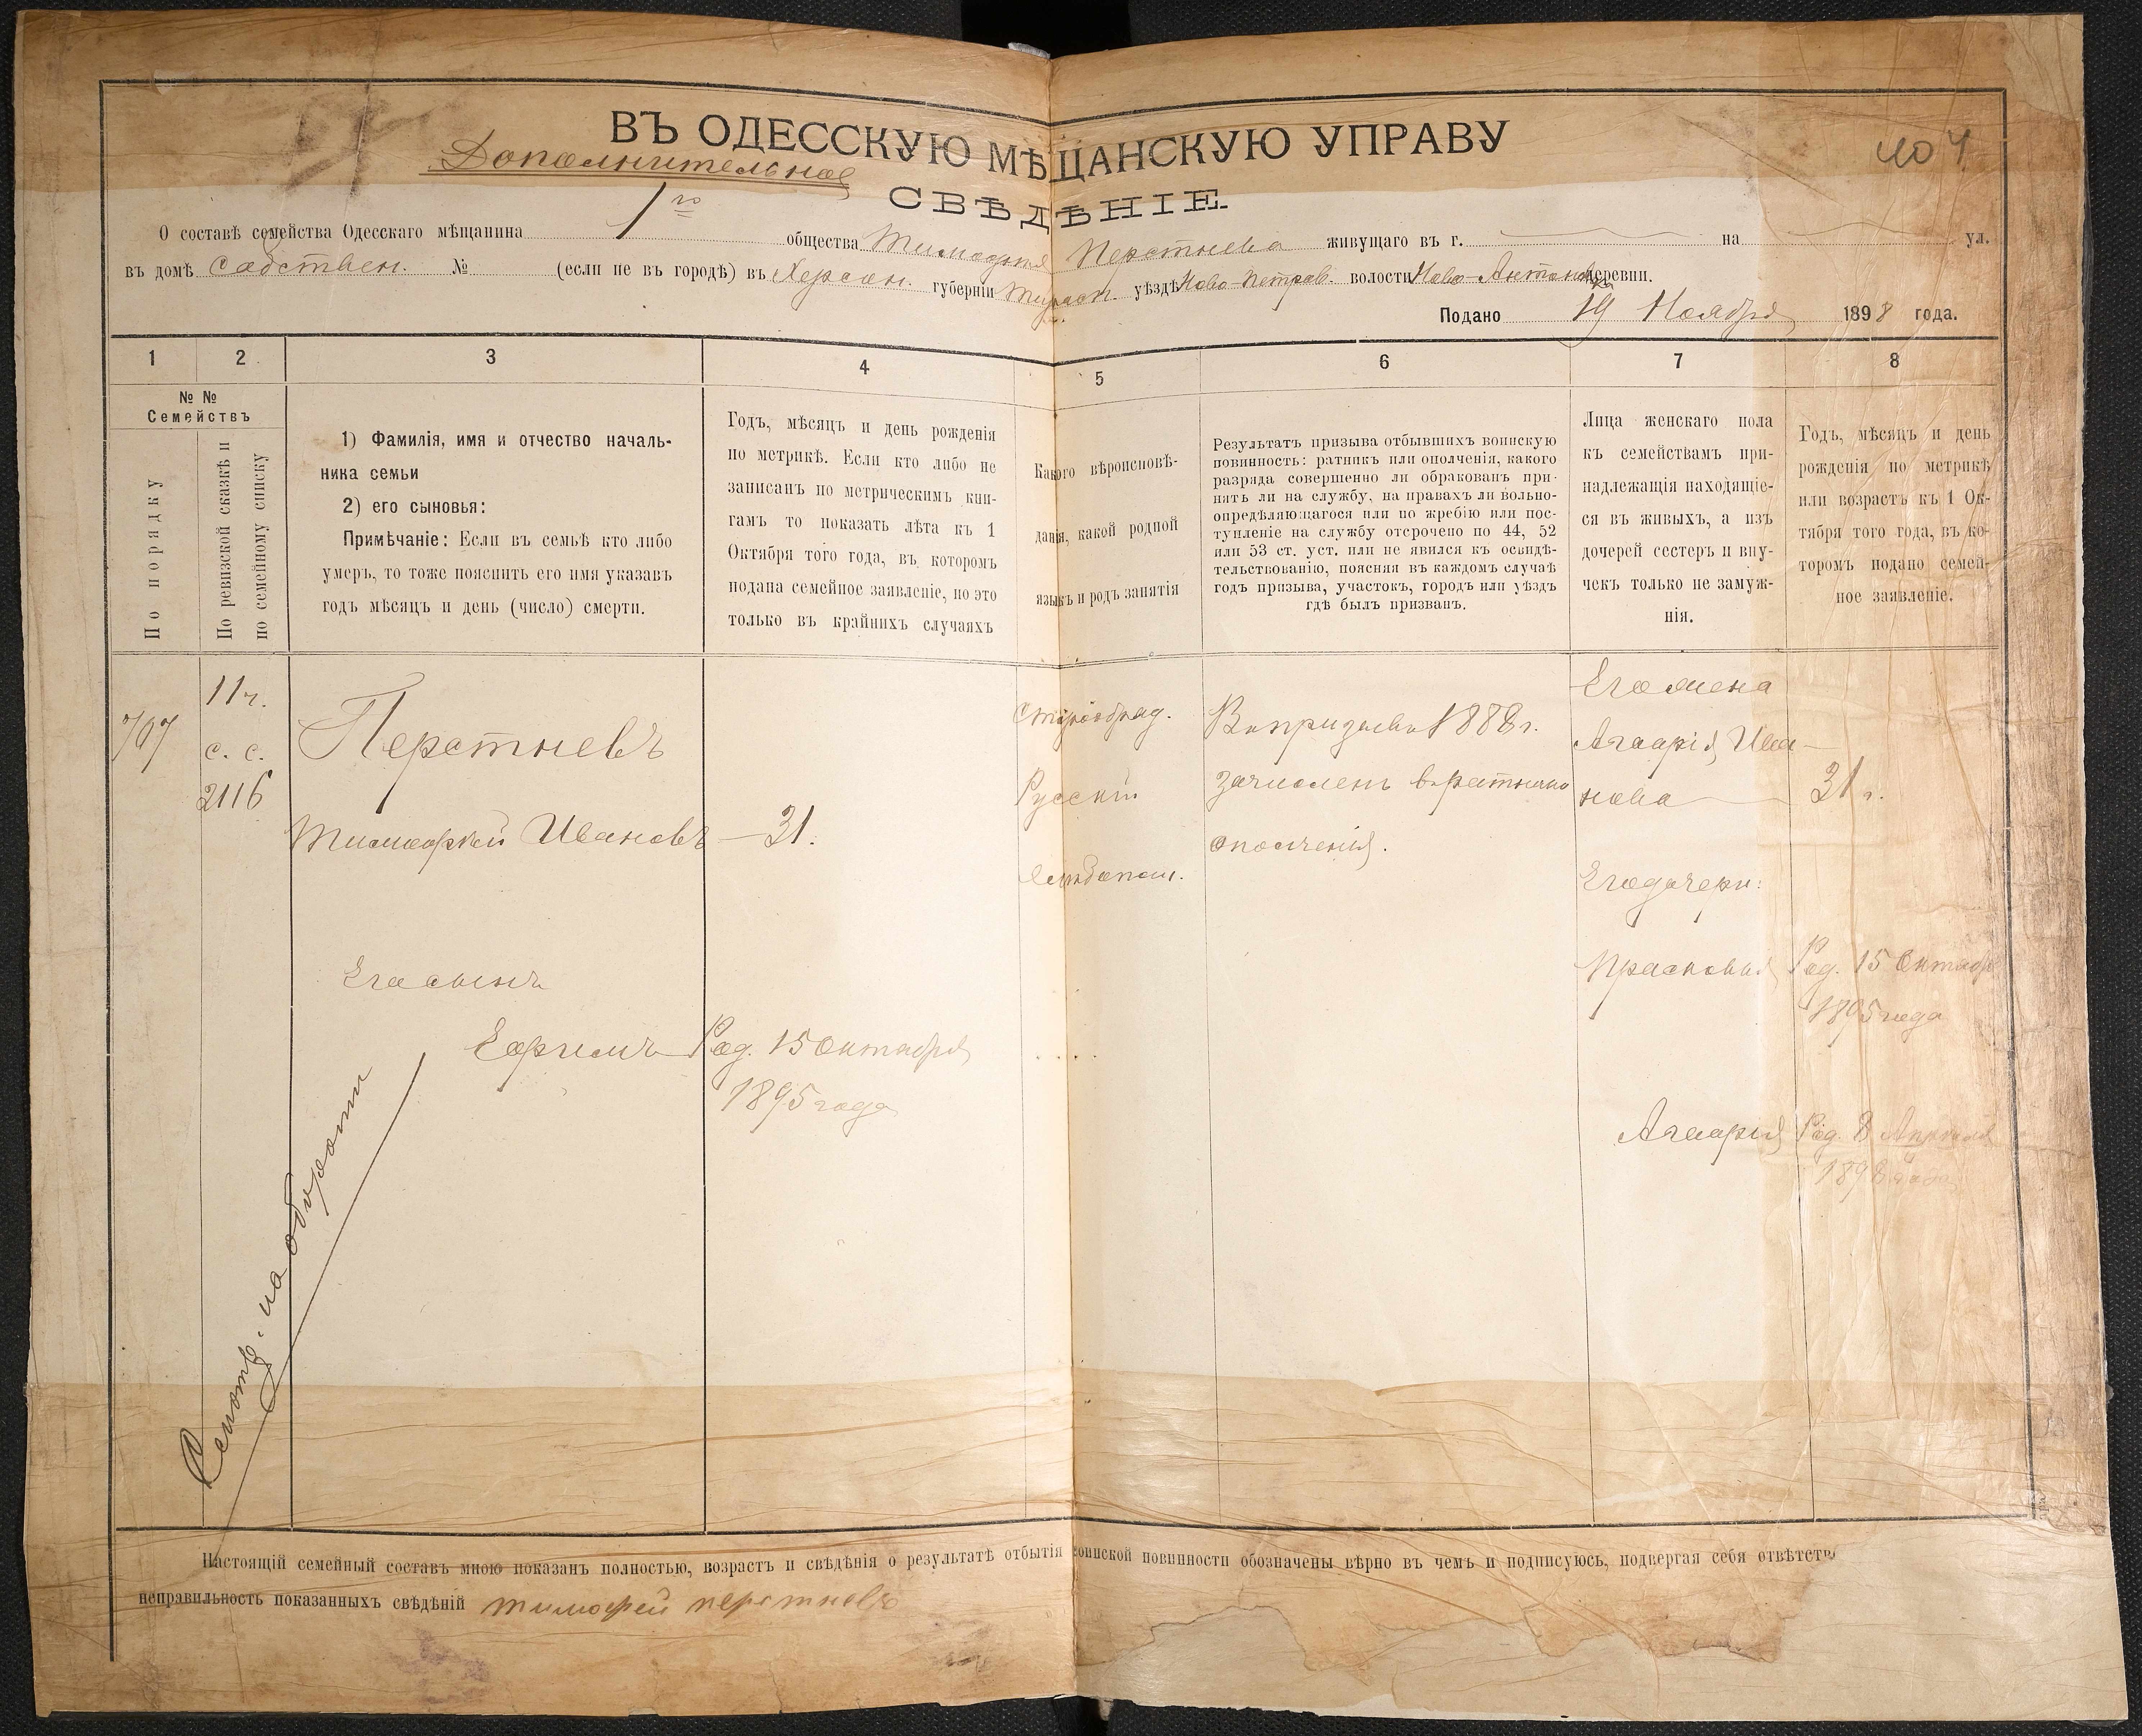 ВЪ ОДЕССКУЮ МѢЩАНСКУЮ УПРАВУ
Дополнительное
СВѢДѢНІЕ
О составѣ семейства Одесскаго мѣщанина 1го общества Тимофея Перстнева живущаго въ г. на ул.
въ домѣ собствен. № (если не въ городѣ) въ Херсон. губерніи Тирасп. уѣздѣ Ново-Петров. волости Ново-Антоновка деревни.
Подано 19 Ноября 1898 года.
1 2 3 4 5 6 7 8
№ №
Семействъ
По порядку
По ревизской сказкѣ и
по семейному списку
1) Фамилія, имя и отчество началь-
ника семьи
2) его сыновья:
Примѣчаніе: Если въ семьѣ кто либо
умеръ, то тоже пояснить его имя указавъ
годъ мѣсяцъ и день (число) смерти.
Годъ, мѣсяцъ и день рожденія
по метрикѣ. Если кто либо не
записанъ по метрическимъ кни-
гамъ то показать лѣта къ 1
Октября того года, въ которомъ
подана семейное заявленіе, но это
только въ крайнихъ случаяхъ
Какого вѣроисповѣ-
данія, какой родной
языкъ и родъ занятія
Результатъ призыва отбывшихъ воинскую
повинность: ратникъ или ополченія, какого
разряда совершенно ли обракованъ при-
нятъ ли на службу, на правахъ ли вольно-
опредѣляющагося или по жребію или пос-
тупленіе на службу отсрочено по 44, 52
или 53 ст. уст. или не явился къ освидѣ-
тельствованію, поясняя въ каждомъ случаѣ
годъ призыва, участокъ, городъ или уѣздъ
гдѣ былъ призванъ.
Лица женскаго пола
къ семействамъ при-
надлежащія находящіе-
ся въ живыхъ, а изъ
дочерей сестеръ и вну-
чекъ только не замуж-
нія.
Годъ, мѣсяцъ и день
рожденія по метрикѣ
или возрастъ къ 1 Ок-
тября того года, въ ко-
торомъ подано семей-
ное заявленіе.
707
11ч.
с. с.
2116
Перстневъ
Тимофей Ивановъ — 31.
Его сынъ
Ефимъ Род. 15 Октября
1895 года
Старообряд.
Русскій
Въ призывъ 1888 г.
зачисленъ въ ратники
ополченія.
Его жена
Агафія Ива-
нова 31 г.
Его дочери:
Прасковья Род. 15 Октябр
1895 года
Агафія Род. 8 Апреля
1898 года
на обороти
Настоящій семейный составъ мною показанъ полностью, возрастъ и свѣдѣнія о результатѣ отбытія воинской повинности обозначены вѣрно въ чемъ и подписуюсь, подвергая себя отвѣтств
неправильность показанныхъ свѣдѣній тимофей перстневъ